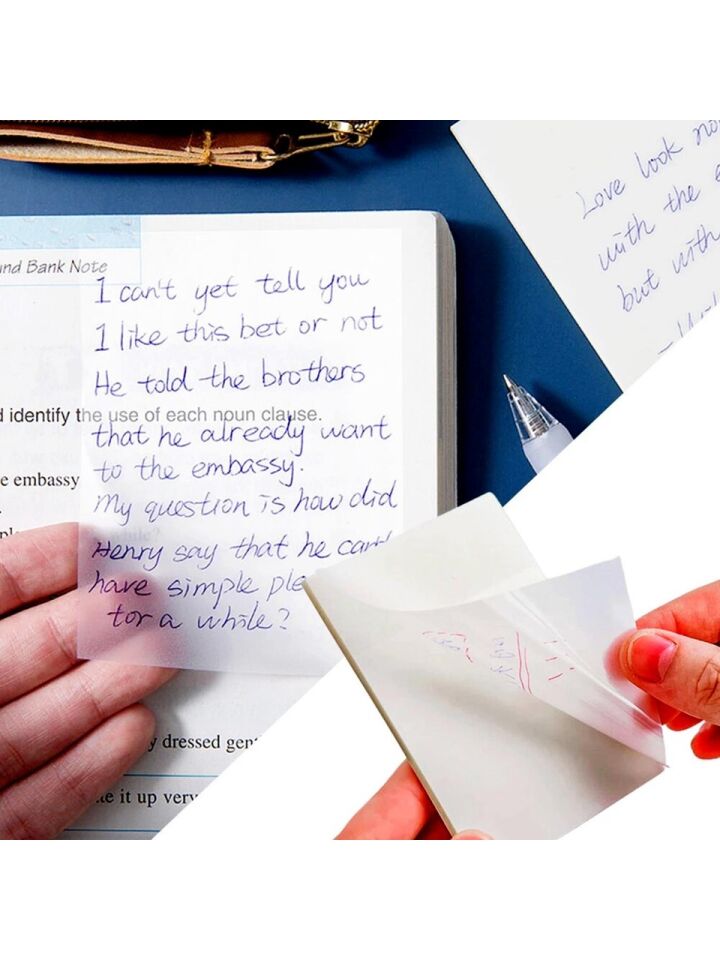 und Bank Note
I can't yet tell you
I like this bet or not
He told the brothers
identify the use of each noun clause.
that he already want
e embassy
to the embassy.
My question is how did
Henry say that he can't
have simple ple
for a while?
y dressed gen
it up very
Love look no
with the e
but with